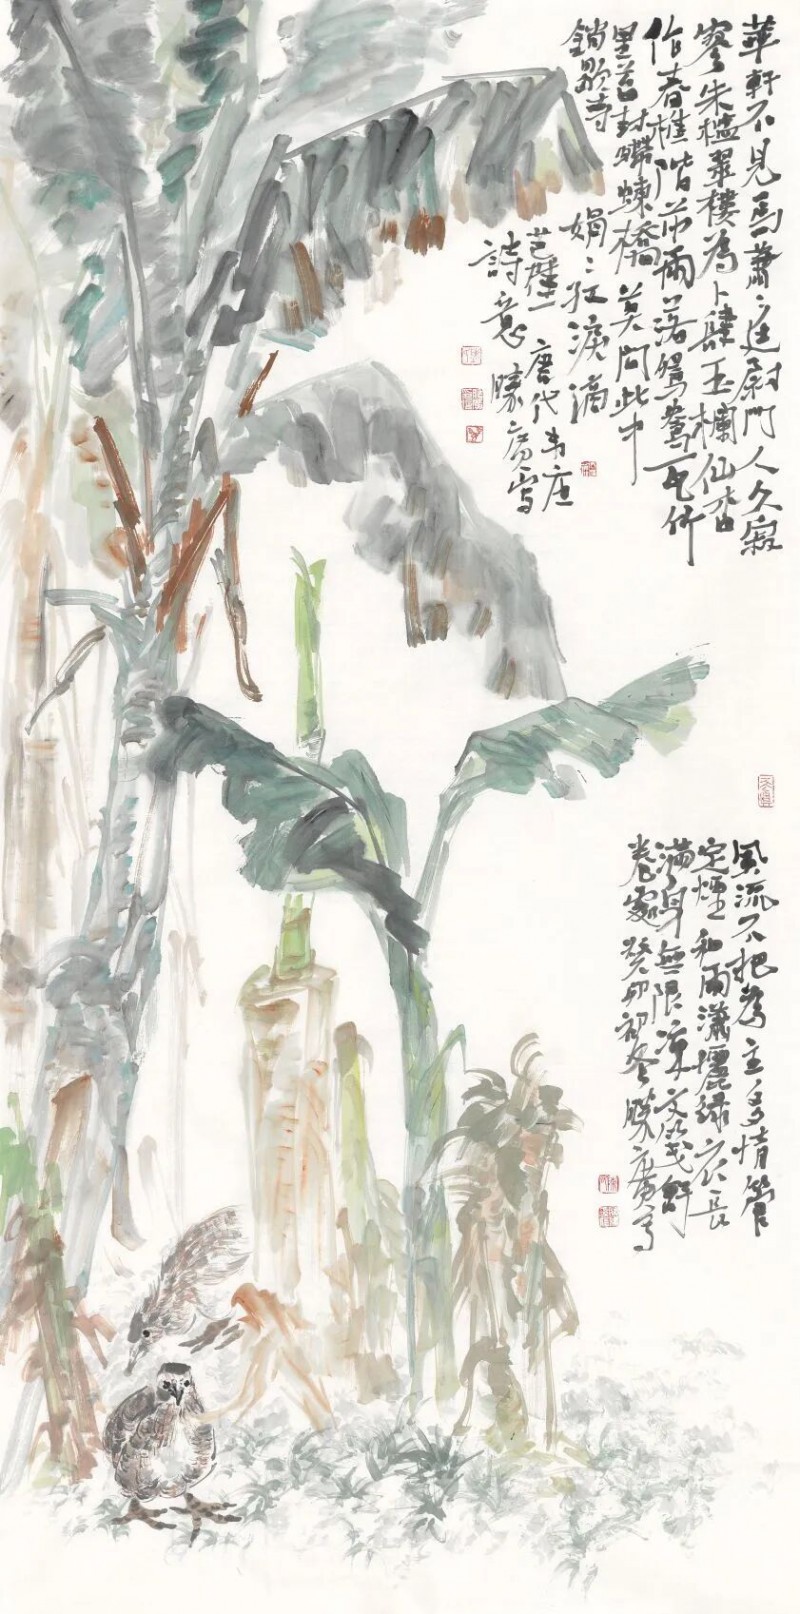 華軒不見馬蕭〻廷尉門人久寂
寥朱檻翠樓為卜肆玉欄仙杏
作春樵階前雨落鴛鴦瓦竹
里苔封螮蝀橋莫問此中
銷歇寺娟〻紅淚滴
芭蕉唐代韦庄
詩意勝廣寫
風流不把為主多情管
定煙和雨瀟灑綠衣長
滿身無限涼文箋舒
卷處癸卯初冬勝廣寫